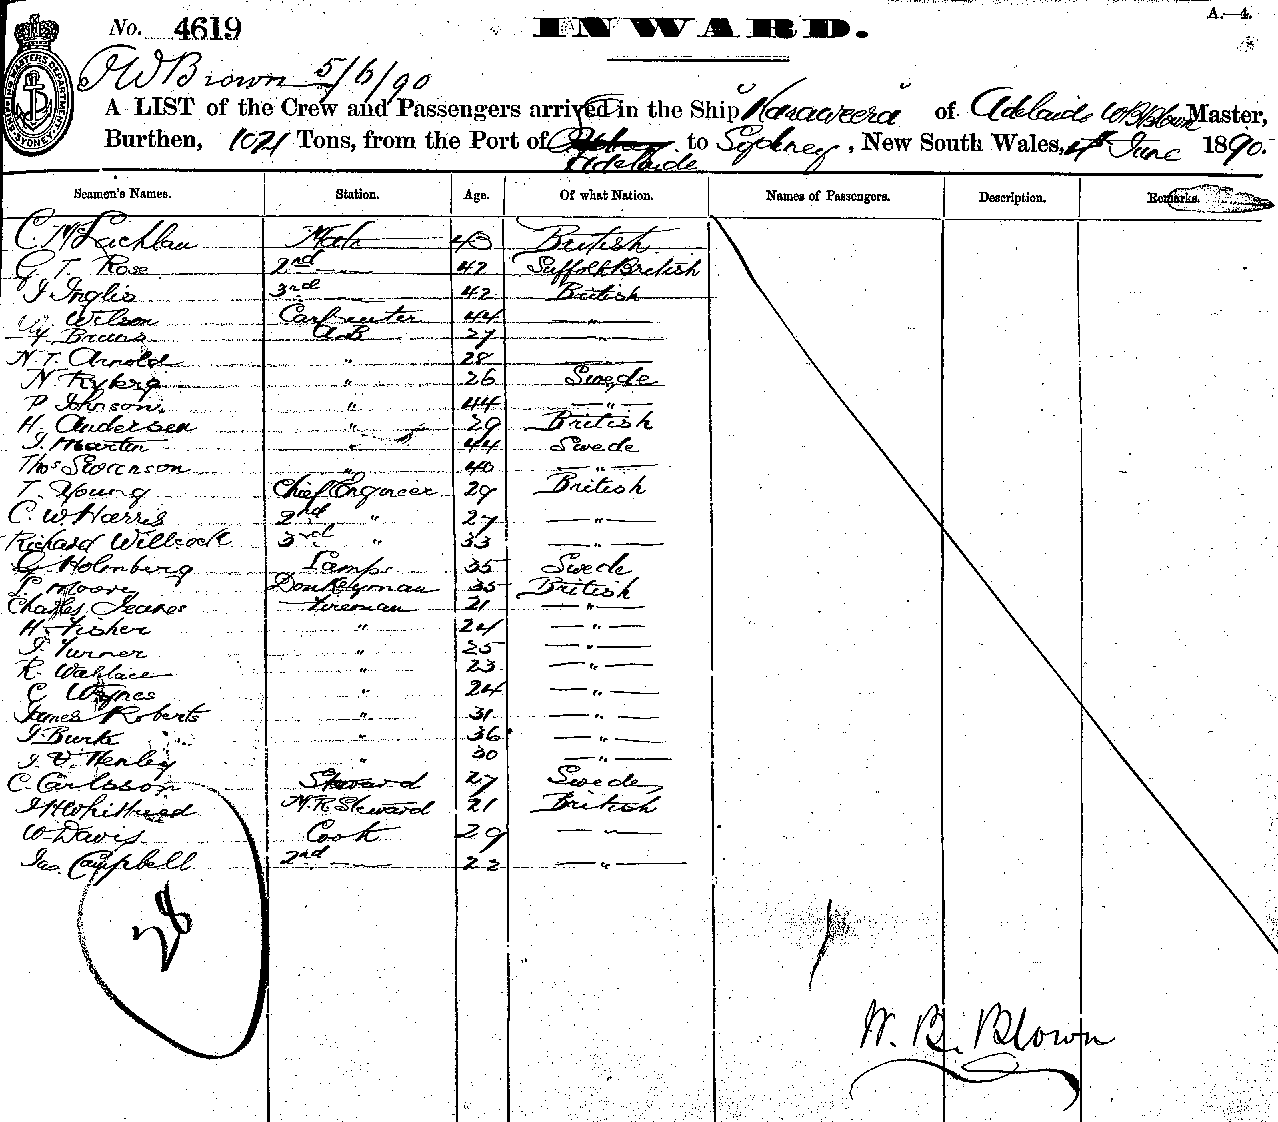 No. 4619
INWARD.
A.—4.
5/6/90
A LIST of the Crew and Passengers arrived in the Ship "Kanaweera" of Adelaide Master,
Burthen, 1021 Tons, from the Port of Adelaide to Sydney, New South Wales, 4th June 1890.
Seamen's Names. Station. Age. Of what Nation. Names of Passengers. Description. Remarks.
C. McLachlan Mate 43 British
G T. Rose 2nd " 42 Suffolk British
J Inglis 3rd 42 British
Wilson Carpenter 44 "
Bruns AB 27 "
N. T. Arnold " 28
N Ryberg " 26 Swede
P Johnson " 44 "
H. Andersen " 29 British
J. Martin " 44 Swede
Thos Sorenson " 40 "
T. Young Chief Engineer 29 British
C. W Harris 2nd " 27 "
Richard Willcock 3rd " 33 "
G Holmberg Lamps 35 Swede
Moore Donkeyman 35 British
Charles Jeanes Fireman 21 "
H. Fisher " 24 "
J. Turner " 25 "
R. Wallace " 23 "
C Waynes " 24 "
James Roberts " 31 "
J Burke " 36 "
J. V. Henley " 30 "
C. Carlsson Steward 27 Swede
J H Whitread M.R. Steward 21 British
W Davis Cook 29 "
Jas Campbell 2nd 22 "
28
W. B. Blown